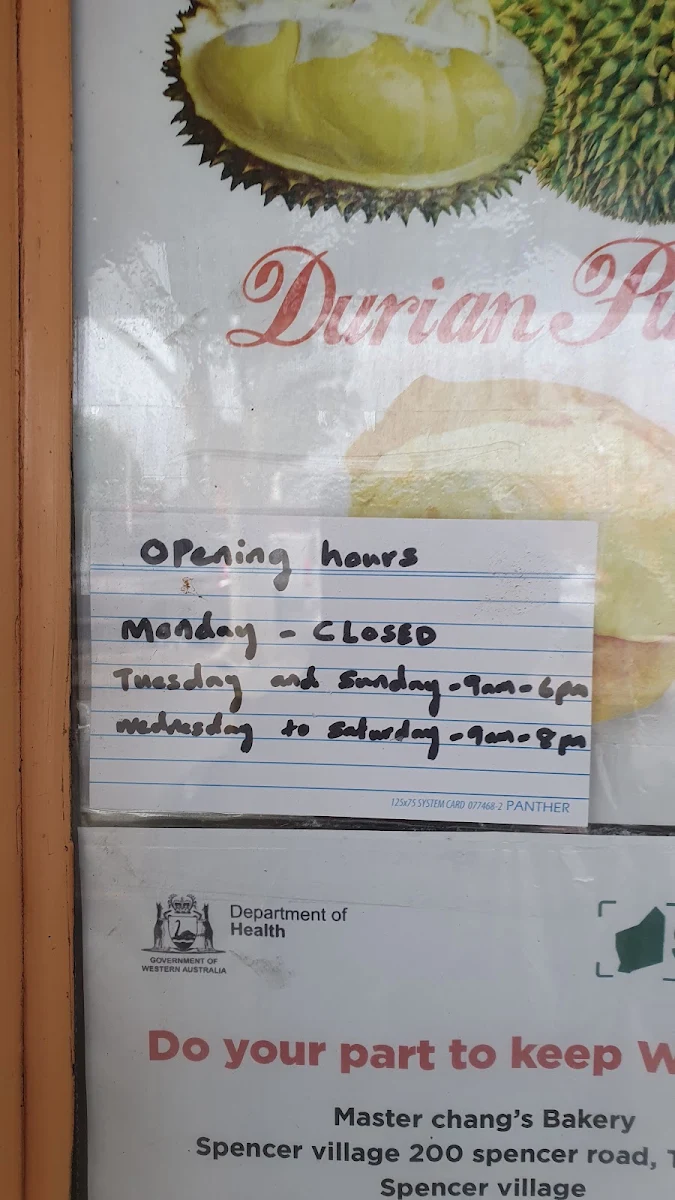 Durian Pu
Opening hours
Monday - CLOSED
Tuesday and Sunday - 9am - 6pm
Wednesday to Saturday - 9am - 8pm
125x75 SYSTEM CARD 077468-2 PANTHER
Department of
Health
GOVERNMENT OF
WESTERN AUSTRALIA
S
Do your part to keep W
Master chang's Bakery
Spencer village 200 spencer road, T
Spencer village